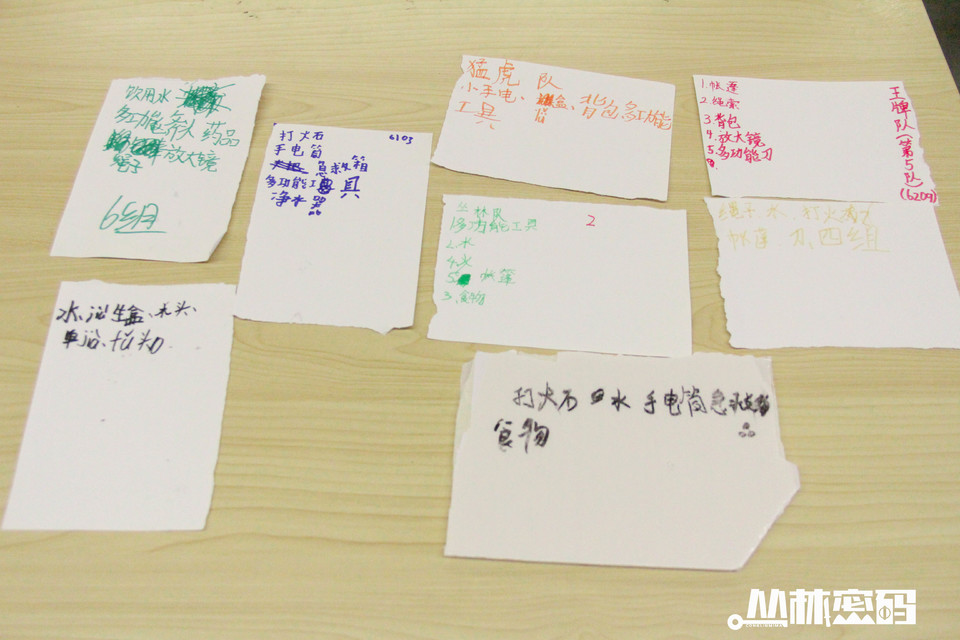 饮用水
多功能斧头 药品
放大镜
绳子
6组
打火石 6103
手电筒
急救箱
多功能工具
净水器
猛虎 队
小手电、
盒、背包多功能
工具
1.帐蓬
2.绳索
3.背包
4.放大镜
5.多功能刀
王牌队(第5队)
(6209)
丛林队 2
1多功能工具
2.水
4.火
5 帐篷
3.食物
绳子、水、打火
四组
水、
打火石 水 手电筒急救箱
食物
丛林密码